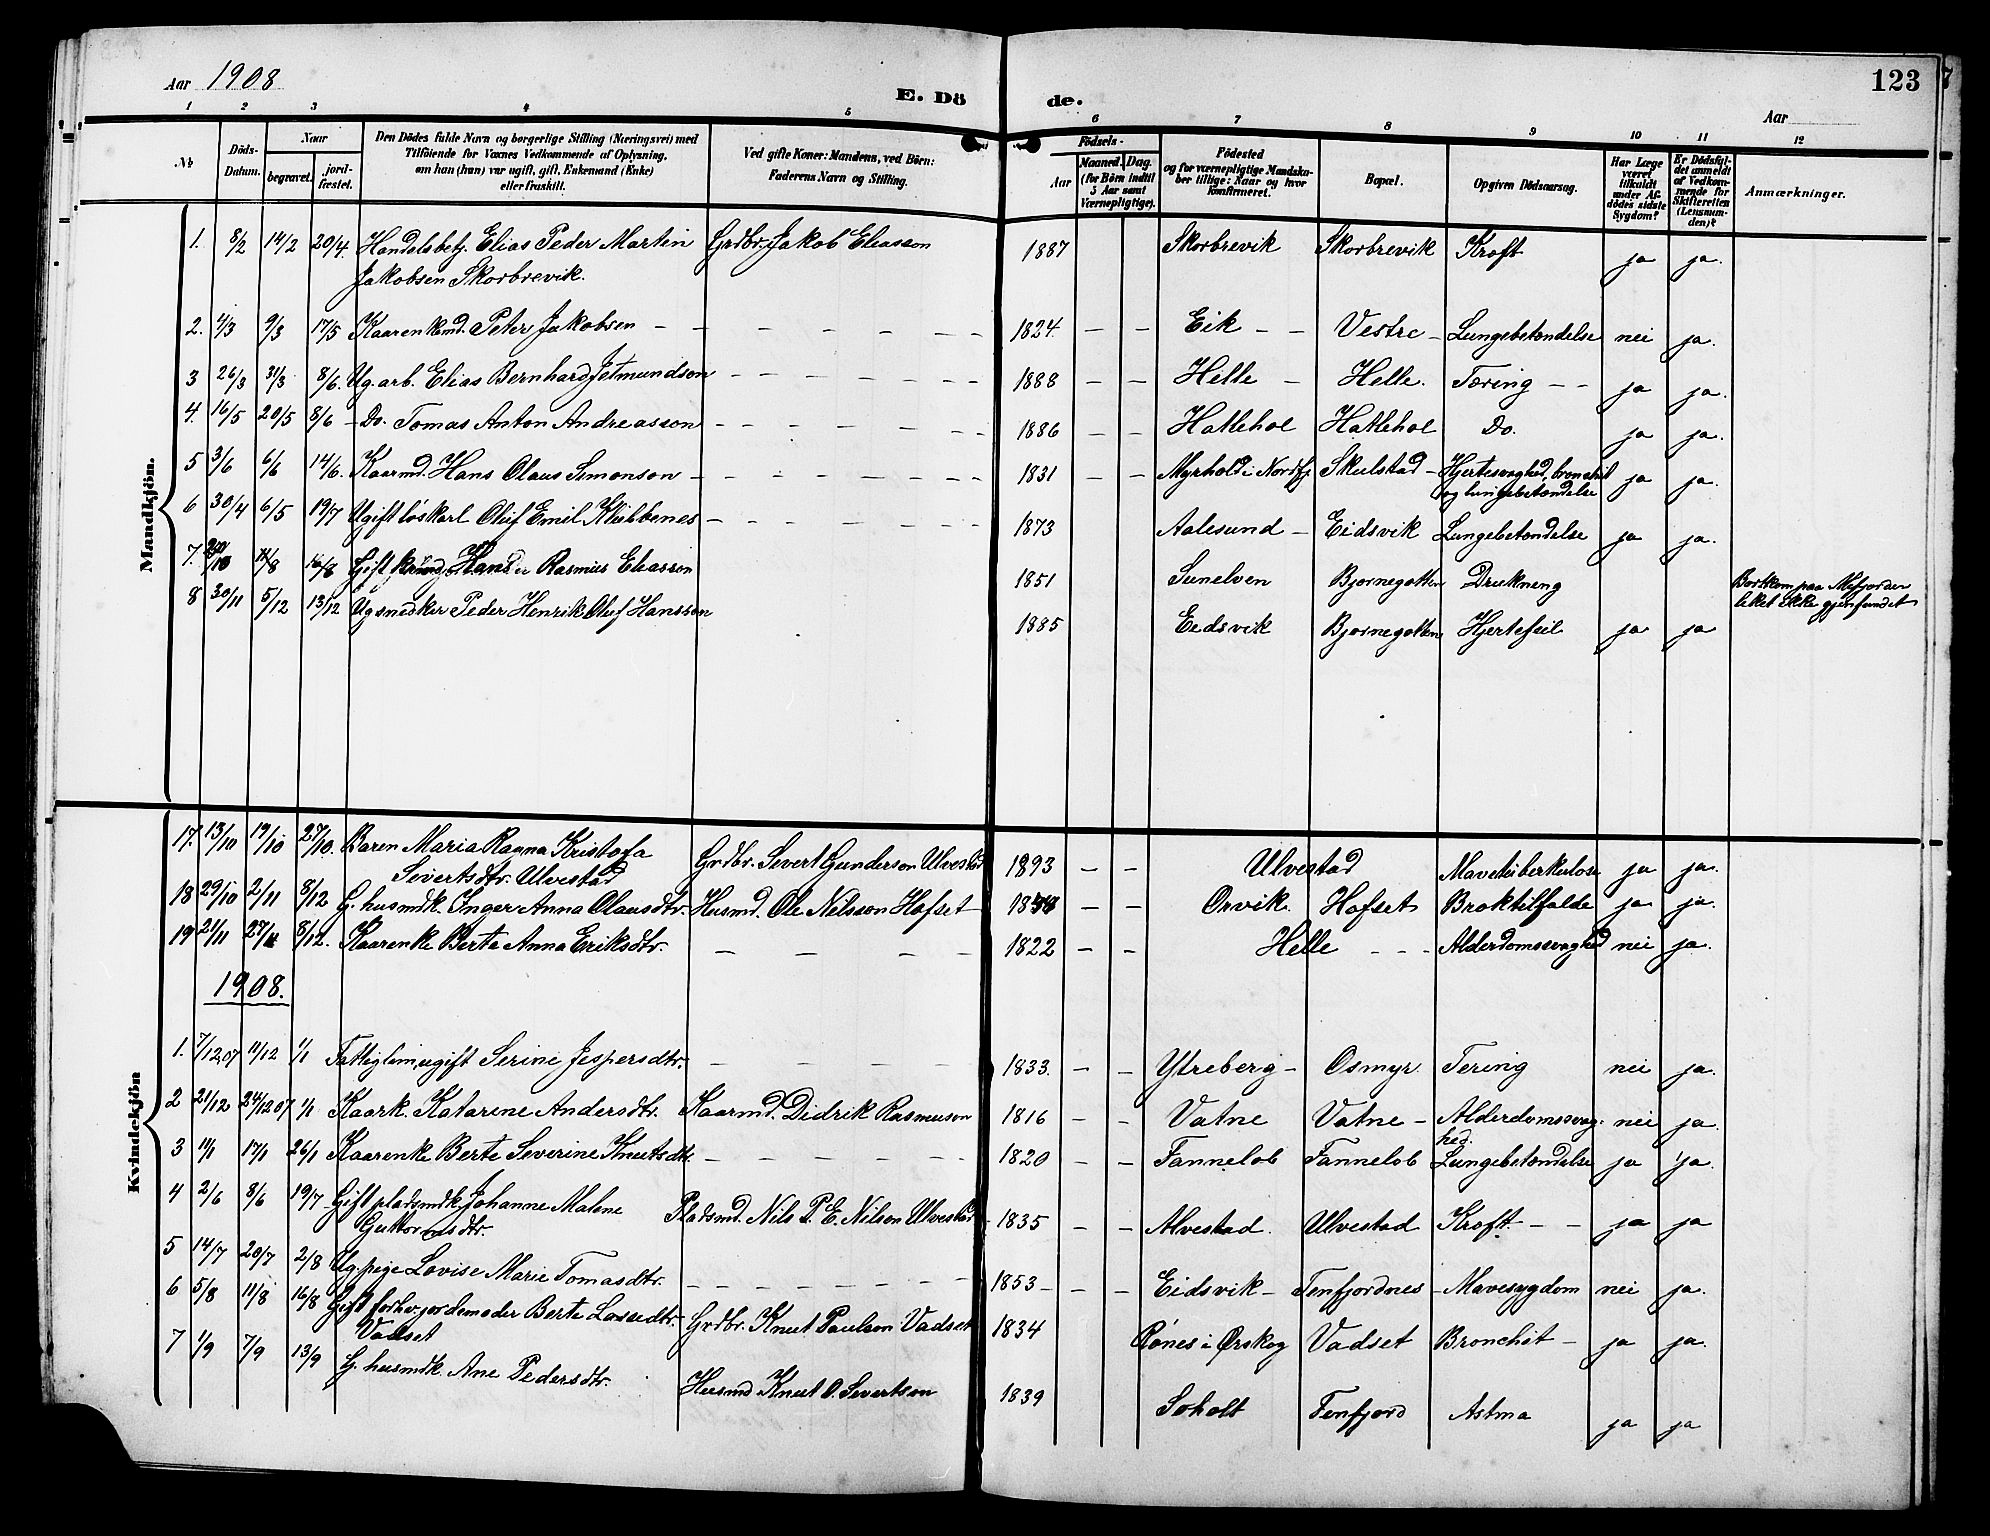 Aar 1908
E. Dö de.
123
Aar
1 2 3 4 5 6 7 8 9 10 11 12
No
Döds-Datum.
Naar
begravet.
jord-fæstet.
Den Dödes fulde Navn og borgerlige Stilling (Næringsvei) med
Tilföiende for Voxnes Vedkommende af Oplysning,
om han (hun) var ugift, gift, Enkemand (Enke)
eller fraskilt.
Ved gifte Koner: Mandens, ved Börn:
Faderens Navn og Stilling.
Födsels-
Aar
Maaned. Dag.
(for Börn indtil
5 Aar samt
Værnepligtige).
Födested
og for værnepligtige Mandska-
ber tillige: Naar og hvor
konfirmeret.
Bopæl.
Opgiven Dödsaarsag.
Har Læge
været
tilkaldt
under Af-
dödes sidste
Sygdom?
Er Dödsfal-
det anmeldt
af Vedkom-
mende for
Skifteretten
(Lensman-
den)?
Anmærkninger.
Mandkjön.
1. 8/2 14/2 20/4 Handelsbetj. Elias Peder Martin Grdbr. Jakob Eliasson 1887 Skorbrevik Skorbrevik Kræft ja ja.
Jakobsen Skorbrevik.
2. 4/3 9/3 17/5 Kaarenkemd. Peter Jakobsen – – – – – – 1824. – – Eik – – Vestre – Lungebetændelse nei ja.
3 26/3 31/3 8/6. Ug. arb. Elias Bernhard Jetmundson – – – – – – 1888 – – Helle – Helle. Tæring – – ja ja.
4. 16/5 20/5 8/6 – Do. Tomas Anton Andreasson – – – – – – 1886 – – Hatlehol Hatlehol Do. ja ja.
5 3/6 6/6 14/6. Kaarmd. Hans Olaus Simonson – – – – – – 1831 – – Myrhold i Nordfj Skulstad – Hjertesvaghed, bronchit ja ja.
og lungebetændelse
6 30/4 6/5 19/7 Ugift löskarl Oluf Emil Klubbenes – – – – – – 1873 Aalesund – Eidsvik Lungebetændelse ja ja.
7. 16/8 Gift Hans Rasmus Eliasson 1851 Sunelven Bjørnegotten Drukning Bortkom paa
liket ikke gjenfundet
8 30/11 5/12 13/12 Ug snedker Peder Henrik Oluf Hansson 1885 Eidsvik Bjørnegotten Hjertefeil ja ja
Kvindekjön
17. 13/10 19/10 27/10. Karen Maria Ragna Kristofa Grdbr. Sivert Gunderson Ulvestad 1893 – – Ulvestad Mavetuberkulose ja ja.
Sivertsdtr. Ulvestad
18 29/10 2/11 8/12 G. husmdk. Inger Anna Olausdtr. Husmd. Ole Nilsson Hofset – – – Orvik. Hofset Broktilfælde ja ja.
19 21/11 27/11 8/12. Kaarenke Berte Anna Eriksdtr. – – – – 1822 – – Helle – – – Alderdomssvaghed nei ja.
1908.
1. 7/12 07 11/12 1/1 Fattiglem, ugift Serine Jespersdtr. – – – – 1833. – – Ytreberg – Osmyr. Tering nei ja.
2 21/12 24/12 07 1/1 Kaark. Katarine Andersdtr. Kaarmd. Didrik Rasmuson 1816 – – Vatne Vatne – Alderdomssvag- nei ja.
hed.
3 11/1 17/1 26/1 Kaarenke Berte Severine Knutsdtr. – – – – – – 1820 – – Fannelob Fannelob Lungebetændelse ja ja.
4 2/6 8/6 19/7 Gift pladsmdk. Johanne Malene Pladsmd. Nils P. E. Nilson Ulvestad 1835 – – Alvestad. Ulvestad Kræft. – – ja ja
Guttormsdtr.
5 14/7 20/7 2/8 Ug. pige Lovise Marie Tomasdtr. – – – – – – 1853 – – – Eidsvik – Tenfjordnes – Mavesygdom nei ja.
6 5/8 11/8 16/8 Gift forhv. jordemoder Berte Lassedtr. Grdbr. Knut Paulson Vadset 1834 Rönes i Ørskog Vadset Bronchit – ja ja.
Vadset
7 1/9 7/9 13/9 G. husmdk. Ane Pedersdtr. Husmd Knut O. Sivertson 1839 Soholt Tenfjord Astma ja ja